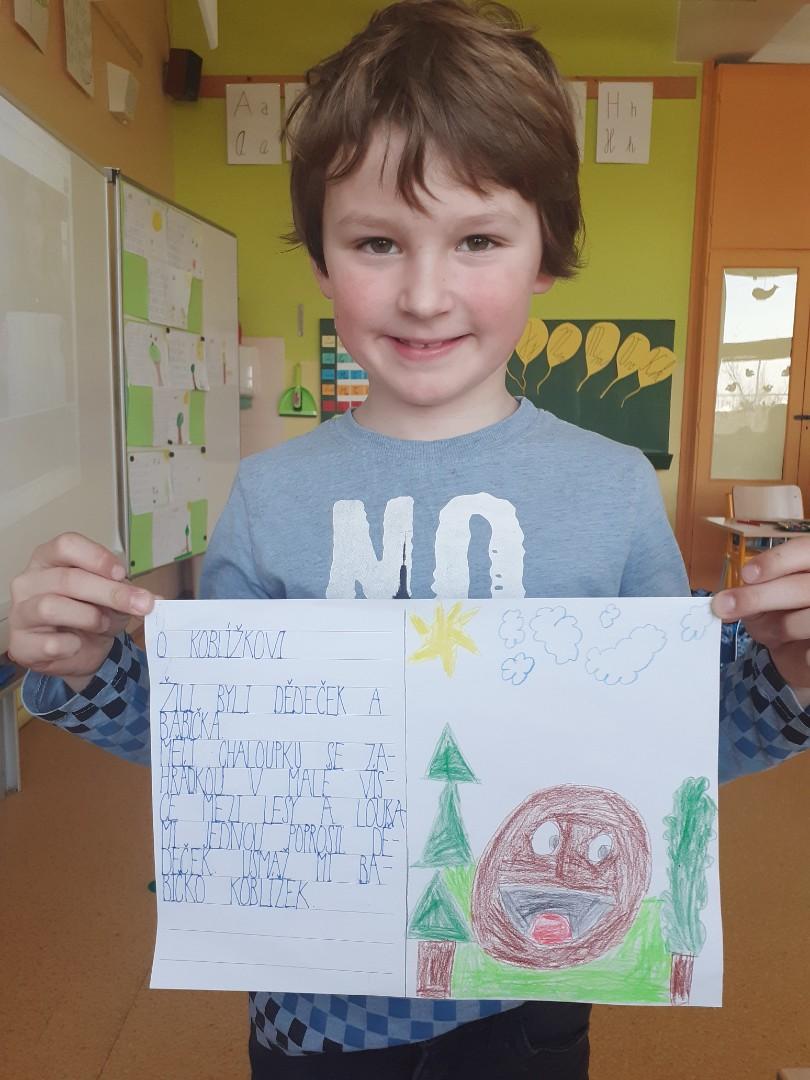 A a
A a
H h
H h
NO
O KOBLÍŽKOVI
ŽILI BYLI DĚDEČEK A
BABIČKA
MĚLI CHALOUPKU SE ZA-
HRADKOU V MALÉ VÍS-
CE MEZI LESY A LOUKA
MI JEDNOU POPROSIL DĚ-
DEČEK USMAŽ MI BA-
BIČKO KOBLÍŽEK